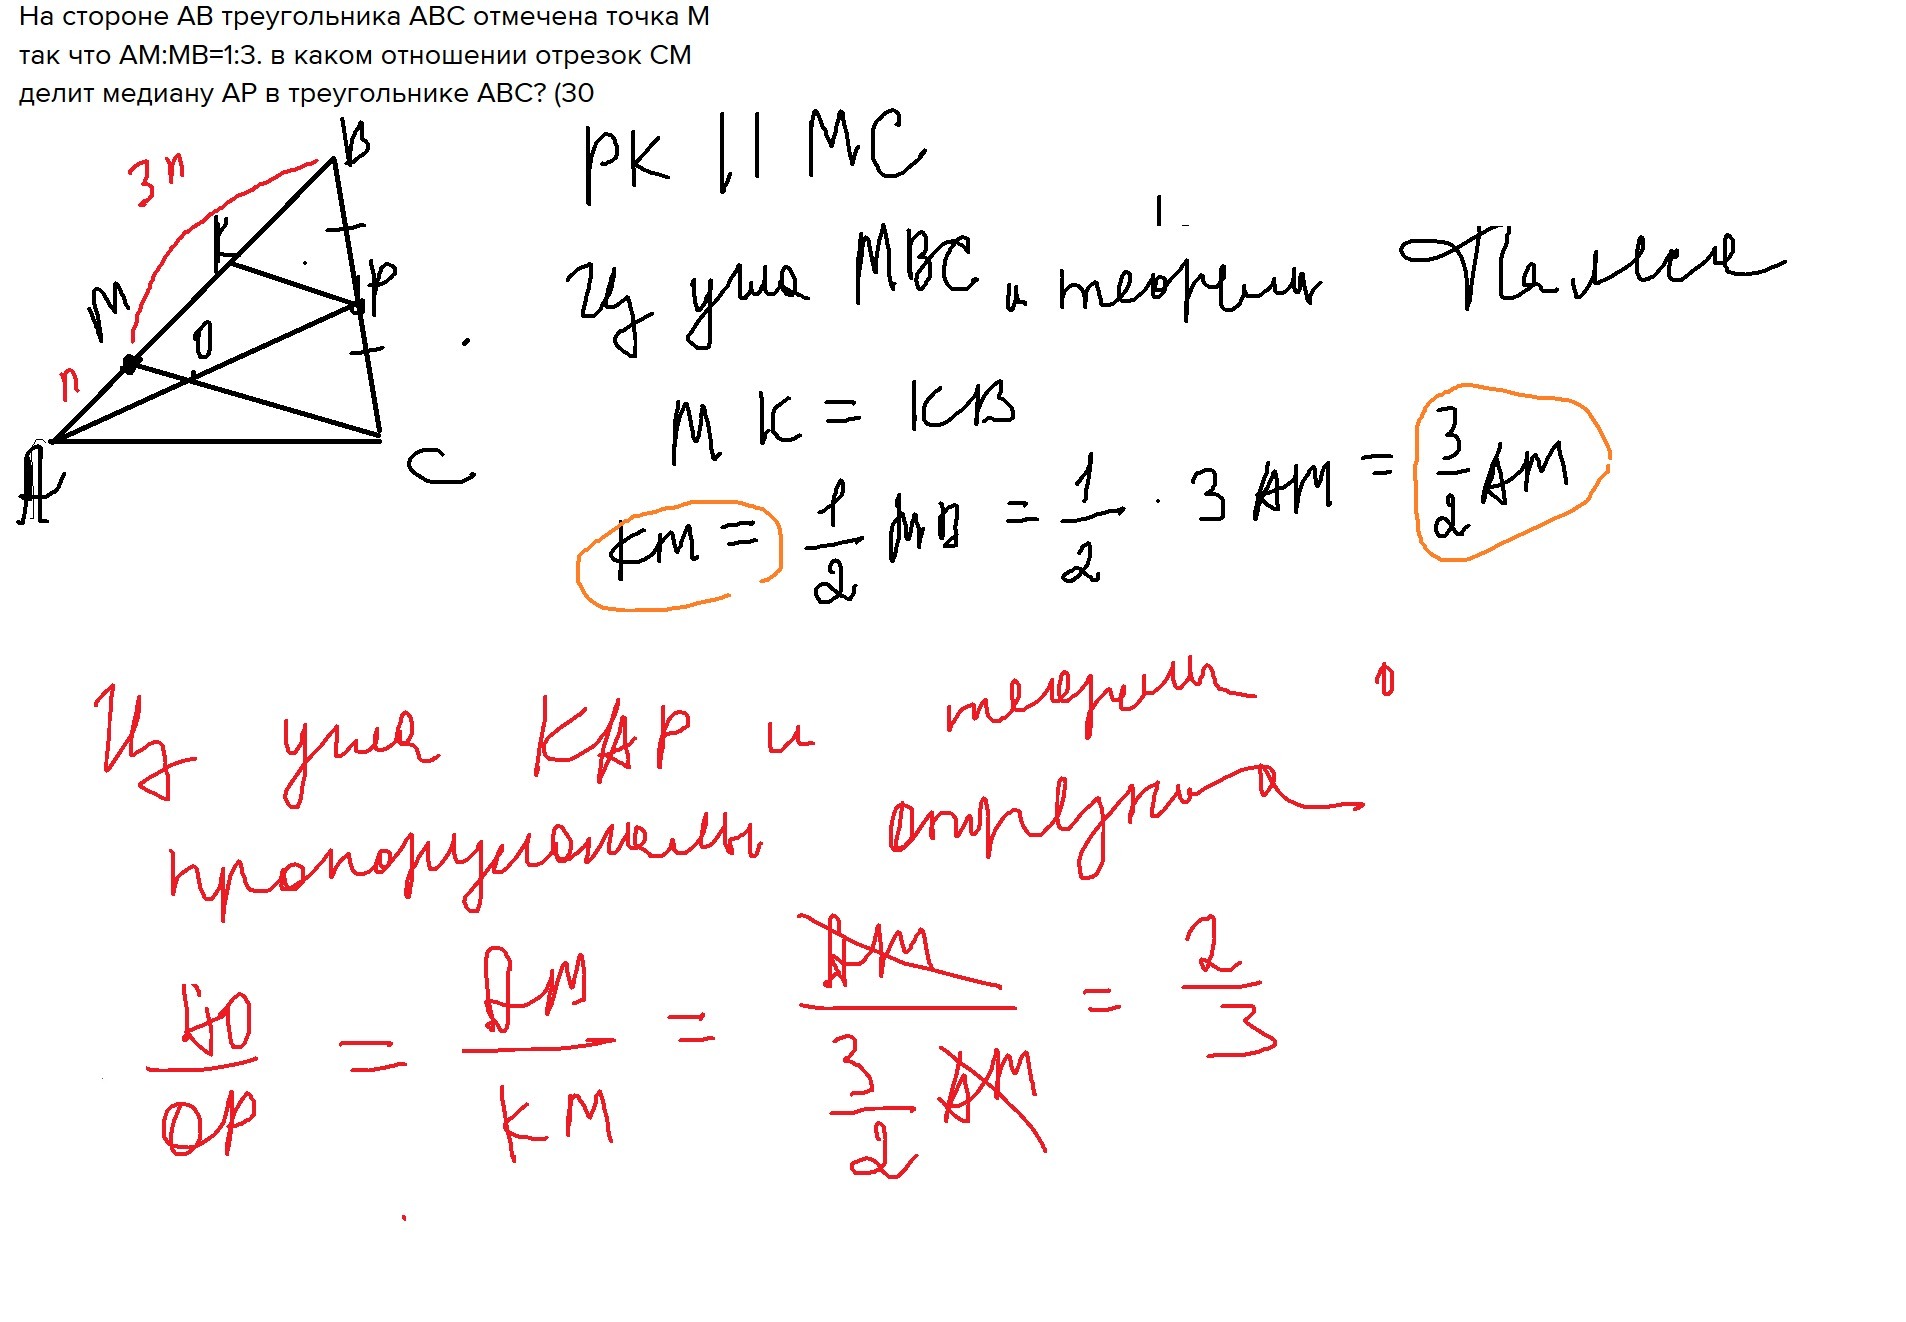 На стороне AB треугольника ABC отмечена точка M
так что AM:MB=1:3. в каком отношении отрезок CM
делит медиану AP в треугольнике ABC? (30
B
3n
K
P
M
O
n
A
C
PK || MC
Из угла MBC и теоремы Фалеса
MK = KB
KM = 1/2 MB = 1/2 · 3 AM = 3/2 AM
Из угла KAP и теоремы о
пропорциональных отрезках
AO/OP = AM/KM = AM/(3/2 AM) = 2/3